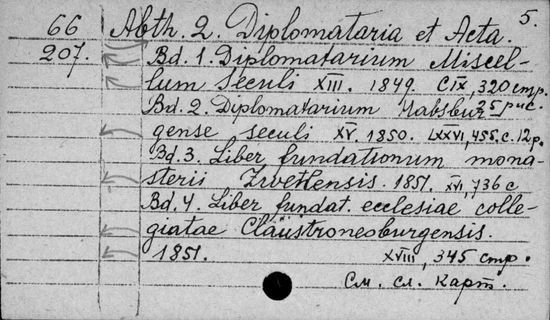 5.
66 Abth. 2. Diplomataria et Acta.
207. Bd. 1. Diplomatarium Miscel-
lum Seculi XIII. 1849. CIX, 320 стр.
25 рис.
Bd. 2. Diplomatarium Habsbur-
gense seculi XV. 1850. LXXVI, 455. с. 12 р.
Bd. 3. Liber fundationum mona-
sterii Zwetlensis. 1851. XVI, 736 с
Bd. 4. Liber fundat. ecclesiae colle-
giatae Claustroneoburgensis.
1851. XVIII, 345 стр.
См. сл. карт.